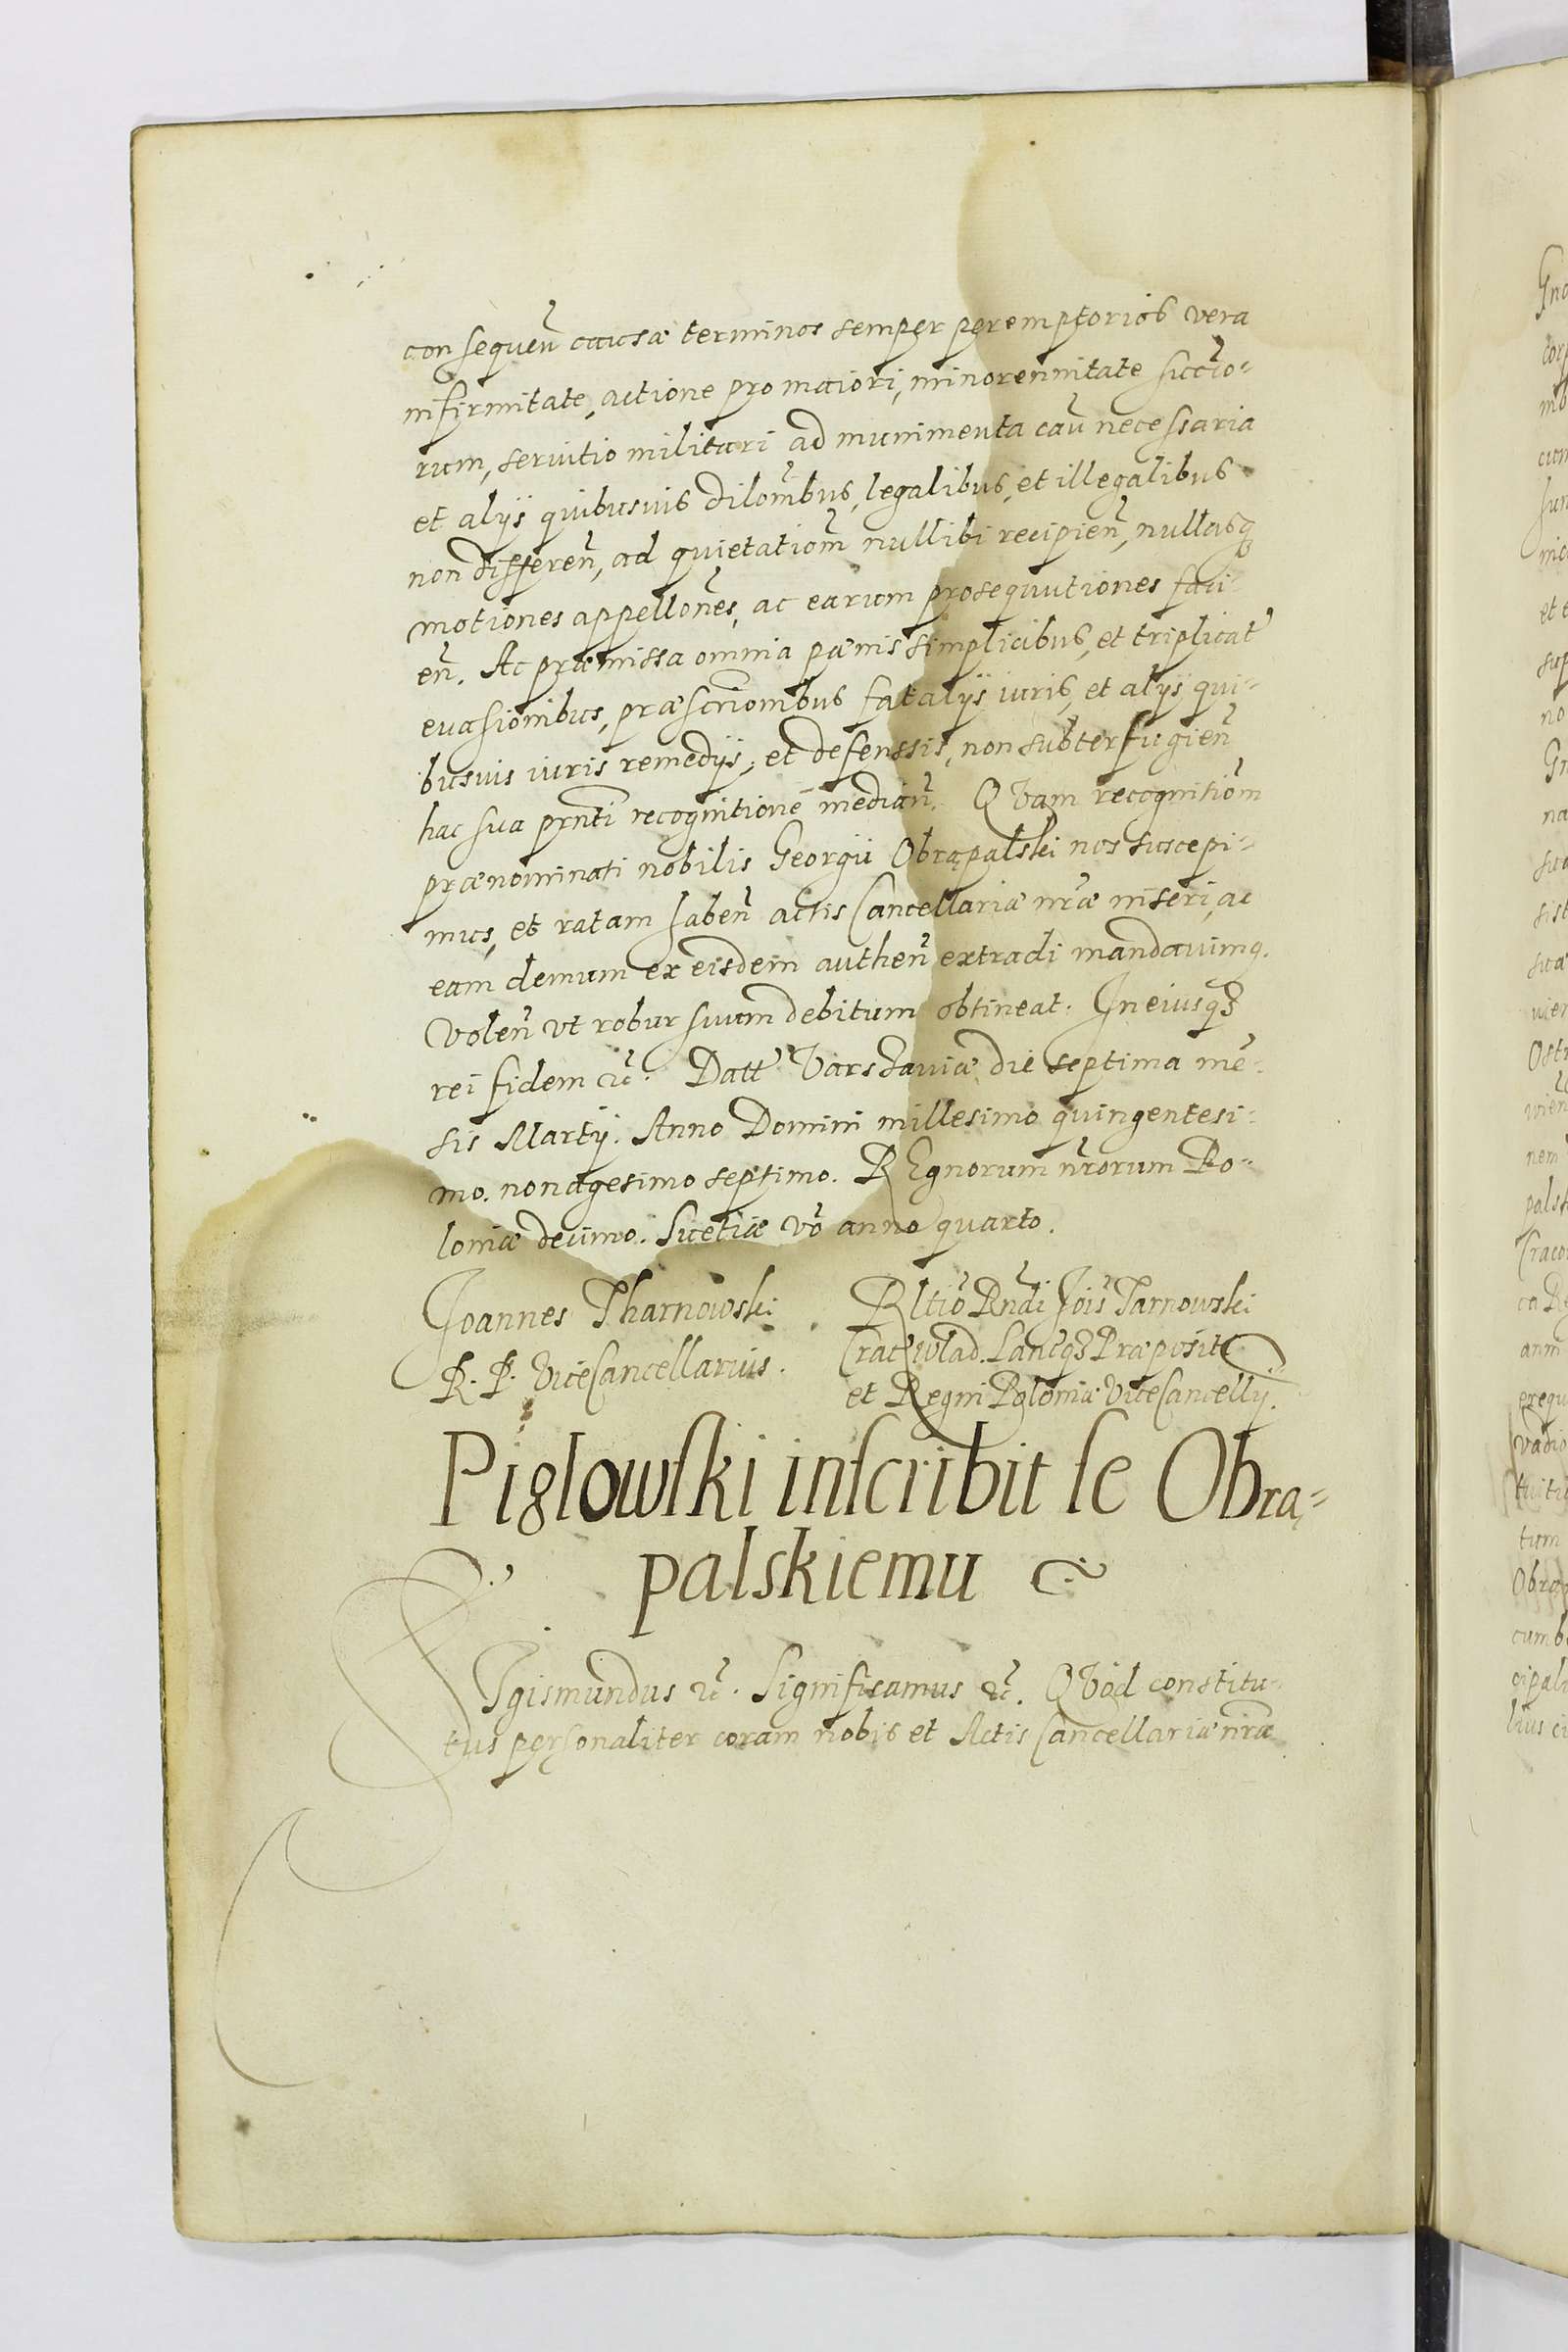 consequeñ causæ terminos semper peremptorios vera
infirmitate, actione pro maiori, minorennitate succio-
rum, seruitio militari ad munimenta cau necessaria
et alÿs quibusuis dilombus, legalibus, et illegalibus
non differeñ, ad quietatiom nullibi recipieñ, nullasq
motiones appellones, ac earum prosequutiones faci
eñ. Ac præmissa omnia pænis simplicibus, et triplicat
euasionibus, præscriombus fatalÿs iuris, et alÿs qui-
busuis iuris remedÿs, et defenssis, non subterfugieñ
hac sua prnti recognitione mediañ. QVam recognitiom
prænominati nobilis Georgii Obrąpalski nos suscepi-
mus, et ratam habeñ actis Cancellariæ nræ inseri, ac
eam demum ex eisdem autheñ extradi mandauimq.
Voleñ vt robur suum debitum obtineat. In eiusqȝ
rei fidem etc. Datt Varschauiæ die septima mē-
sis Martÿ. Anno Domini millesimo quingentesi-
mo. nonagesimo septimo. REgnorum nrorum Po-
loniæ decimo. Suetiæ vo anno quarto.
Joannes Tharnowski
R. P. ViceCancellarius.
Rltio Rndi Jois Tarnowski
Crac Wlad. Lancqȝ Præpositi
et Regni Poloniæ ViceCancellÿ.
Piglowski inscribit se Obrą-
palskiemu
SIgismundus etc. Significamus etc. QVod constitu-
tus personaliter coram nobis et Actis Cancellariæ nræ